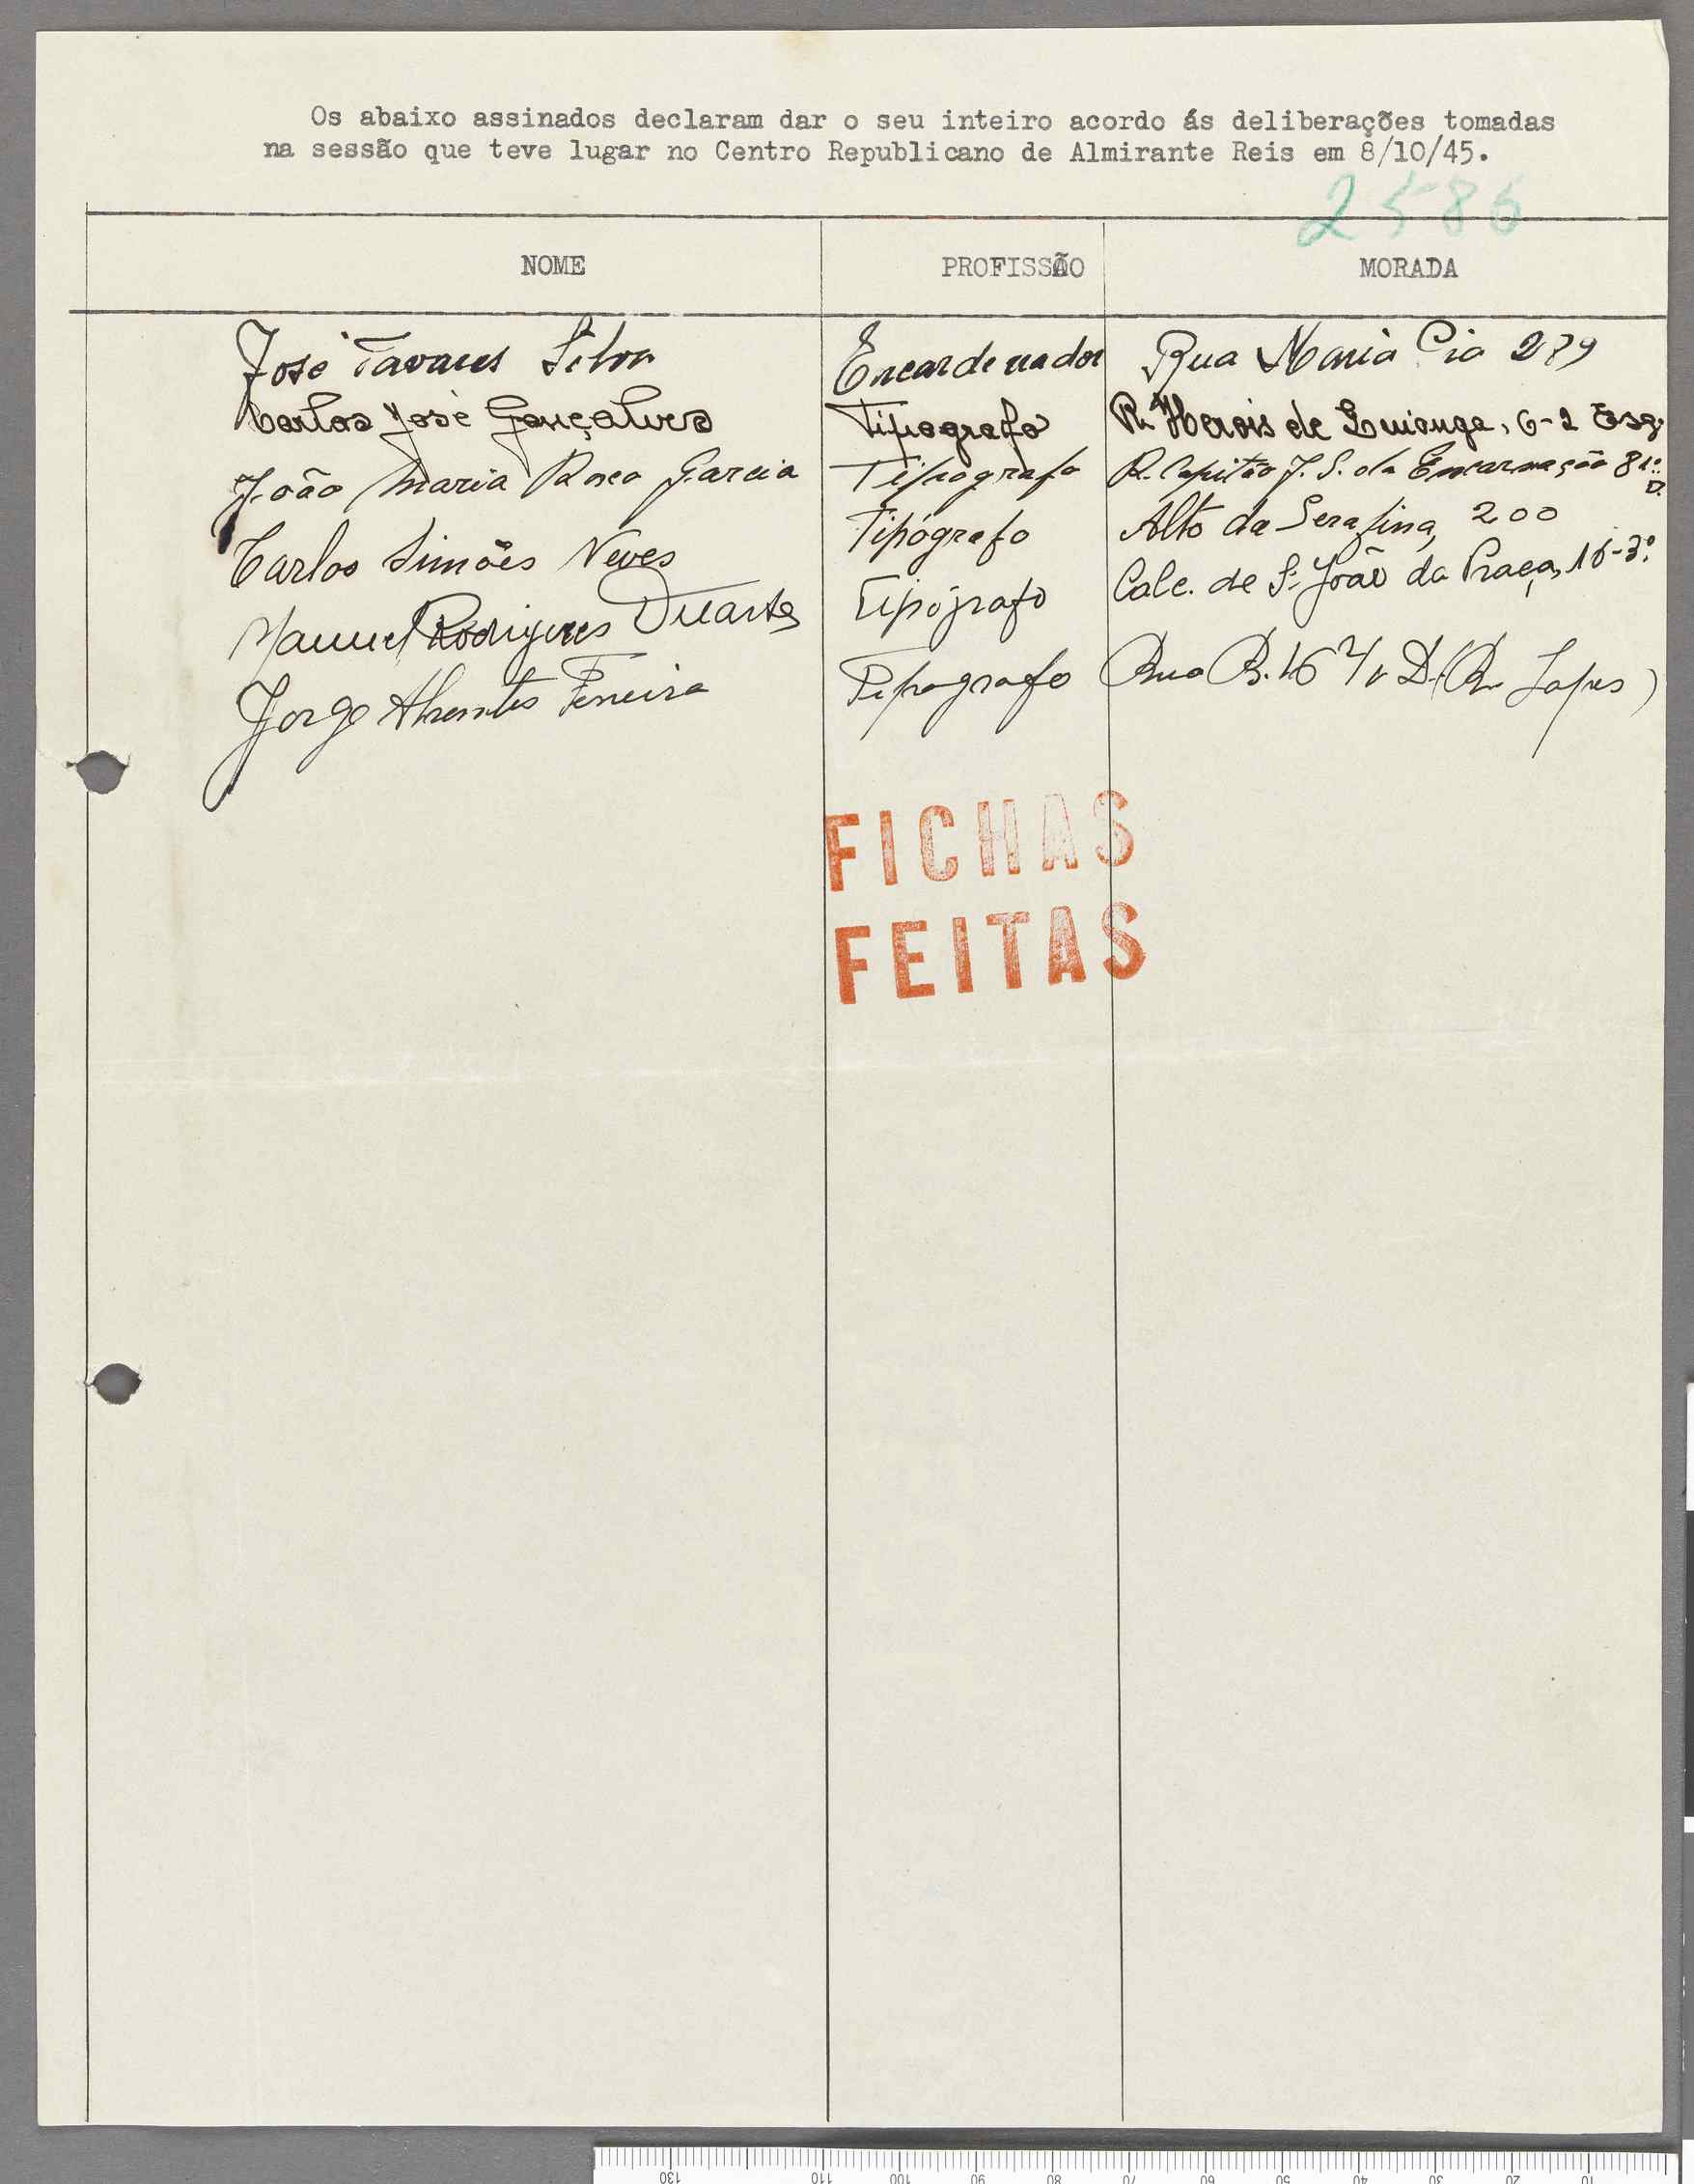 Os abaixo assinados declaram dar o seu inteiro acordo ás deliberações tomadas
na sessão que teve lugar no Centro Republicano de Almirante Reis em 8/10/45.
2586
NOME PROFISSÃO MORADA
José Tavares Silva Encardenador Rua Maria Pia 279
Carlos José Gonçalves Tipografo R. Herois de Quionga, 6-2 Esq.
João Maria Roco Garcia Tipografo R. Capitão J. S. da Encarnação 8 1º D.
Carlos Simões Neves Tipógrafo Alto da Serafina, 200
Manuel Rodrigues Duarte Tipógrafo Calc. de S. João da Praça, 16-3º
Jorge Abrantes Ferreira Tipografo Rua B. 16 D. (R. Lopes)
FICHAS
FEITAS
130 110 100 90 80 70 60 50 40 30 20 10